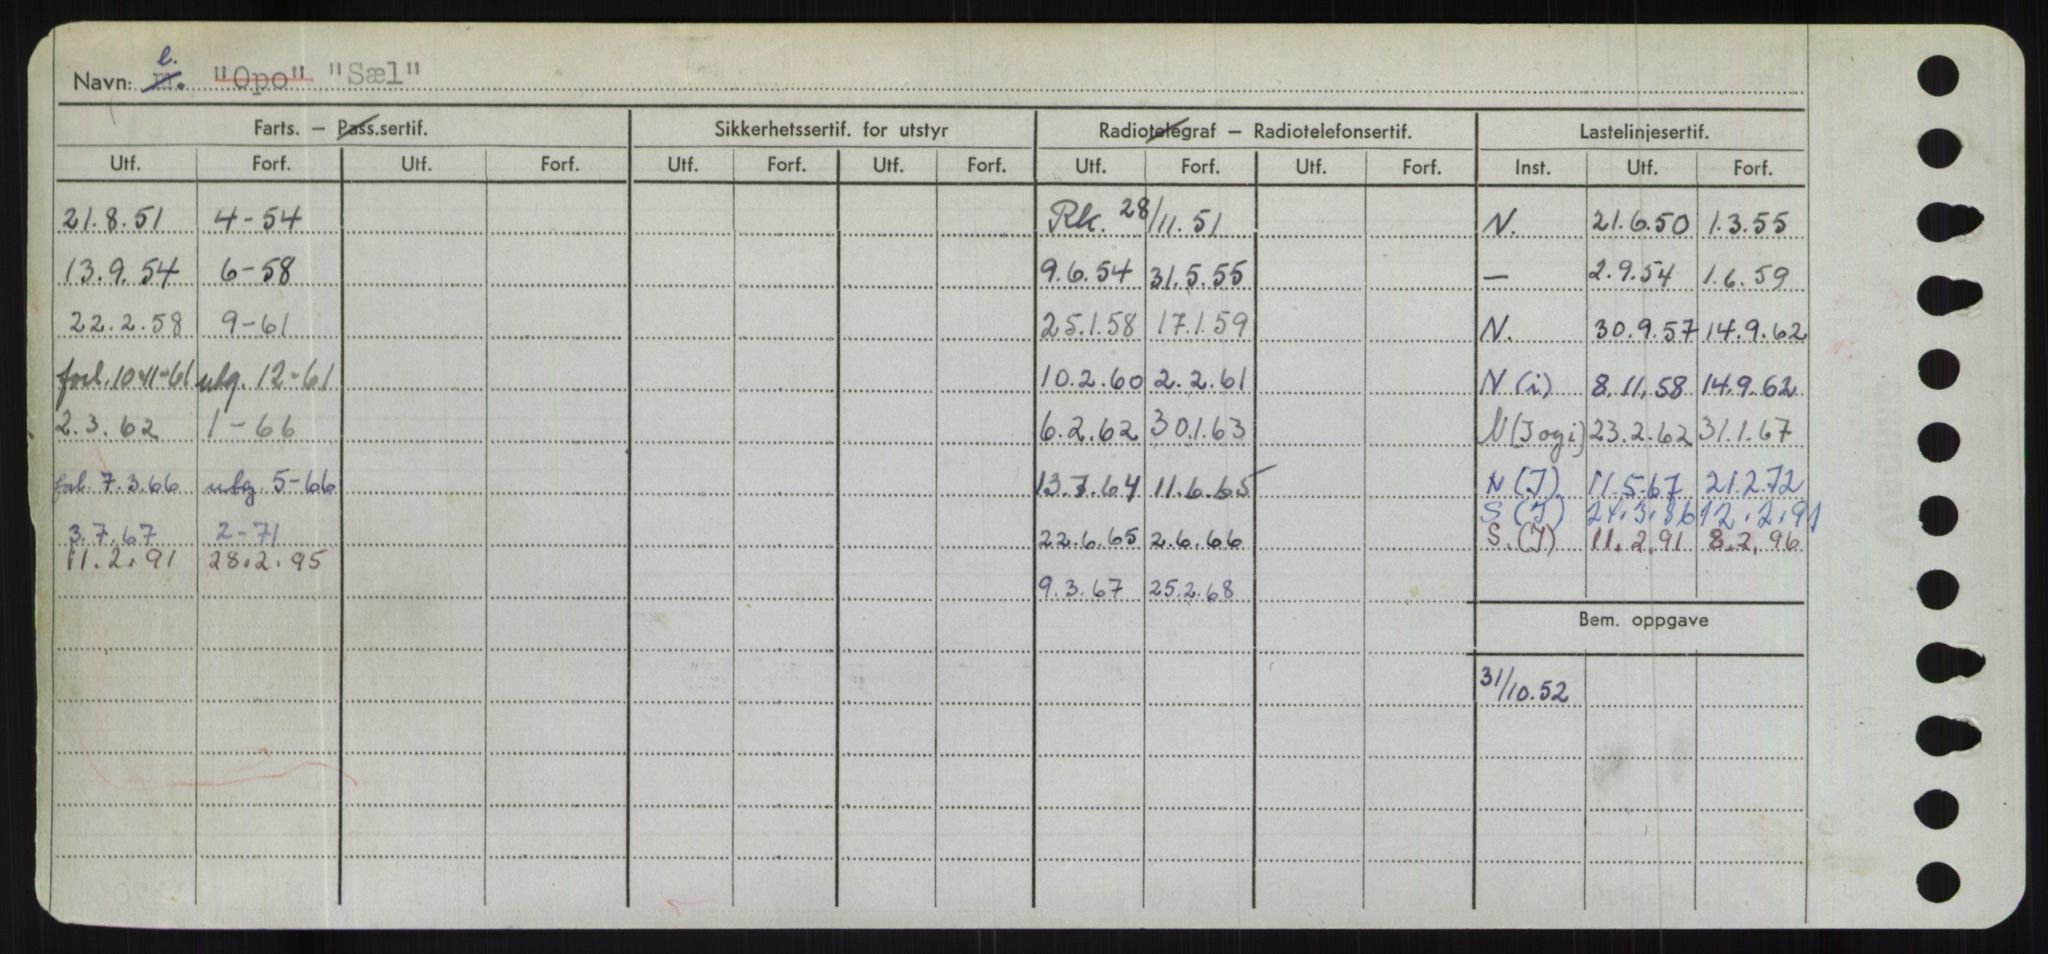 l.
Navn: m. "Opo" "Sæl"
Farts. – Pass.sertif. Sikkerhetssertif. for utstyr Radiotelegraf – Radiotelefonsertif. Lastelinjesertif.
Utf. Forf. Utf. Forf. Utf. Forf. Utf. Forf. Utf. Forf. Utf. Forf. Inst. Utf. Forf.
21.8.51 4-54 Rk. 28/11.51 N. 21.6.50 1.3.55
13.9.54 6-58 9.6.54 31.5.55 — 2.9.54 1.6.59
22.2.58 9-61 25.1.58 17.1.59 N. 30.9.57 14.9.62
forl. 10-11-61 utg. 12-61 10.2.60 2.2.61 N (i) 8.11.58 14.9.62
2.3.62 1-66 6.2.62 30.1.63 N (J og i) 23.2.62 31.1.67
forl. 7.3.66 utg. 5-66 13.7.64 11.6.65 N (J) 11.5.67 21.2.72
S (J) 24.3.86 12.2.91
3.7.67 2-71 22.6.65 2.6.66 S. (J) 11.2.91 8.2.96
11.2.91 28.2.95
9.3.67 25.2.68
Bem. oppgave
31/10.52